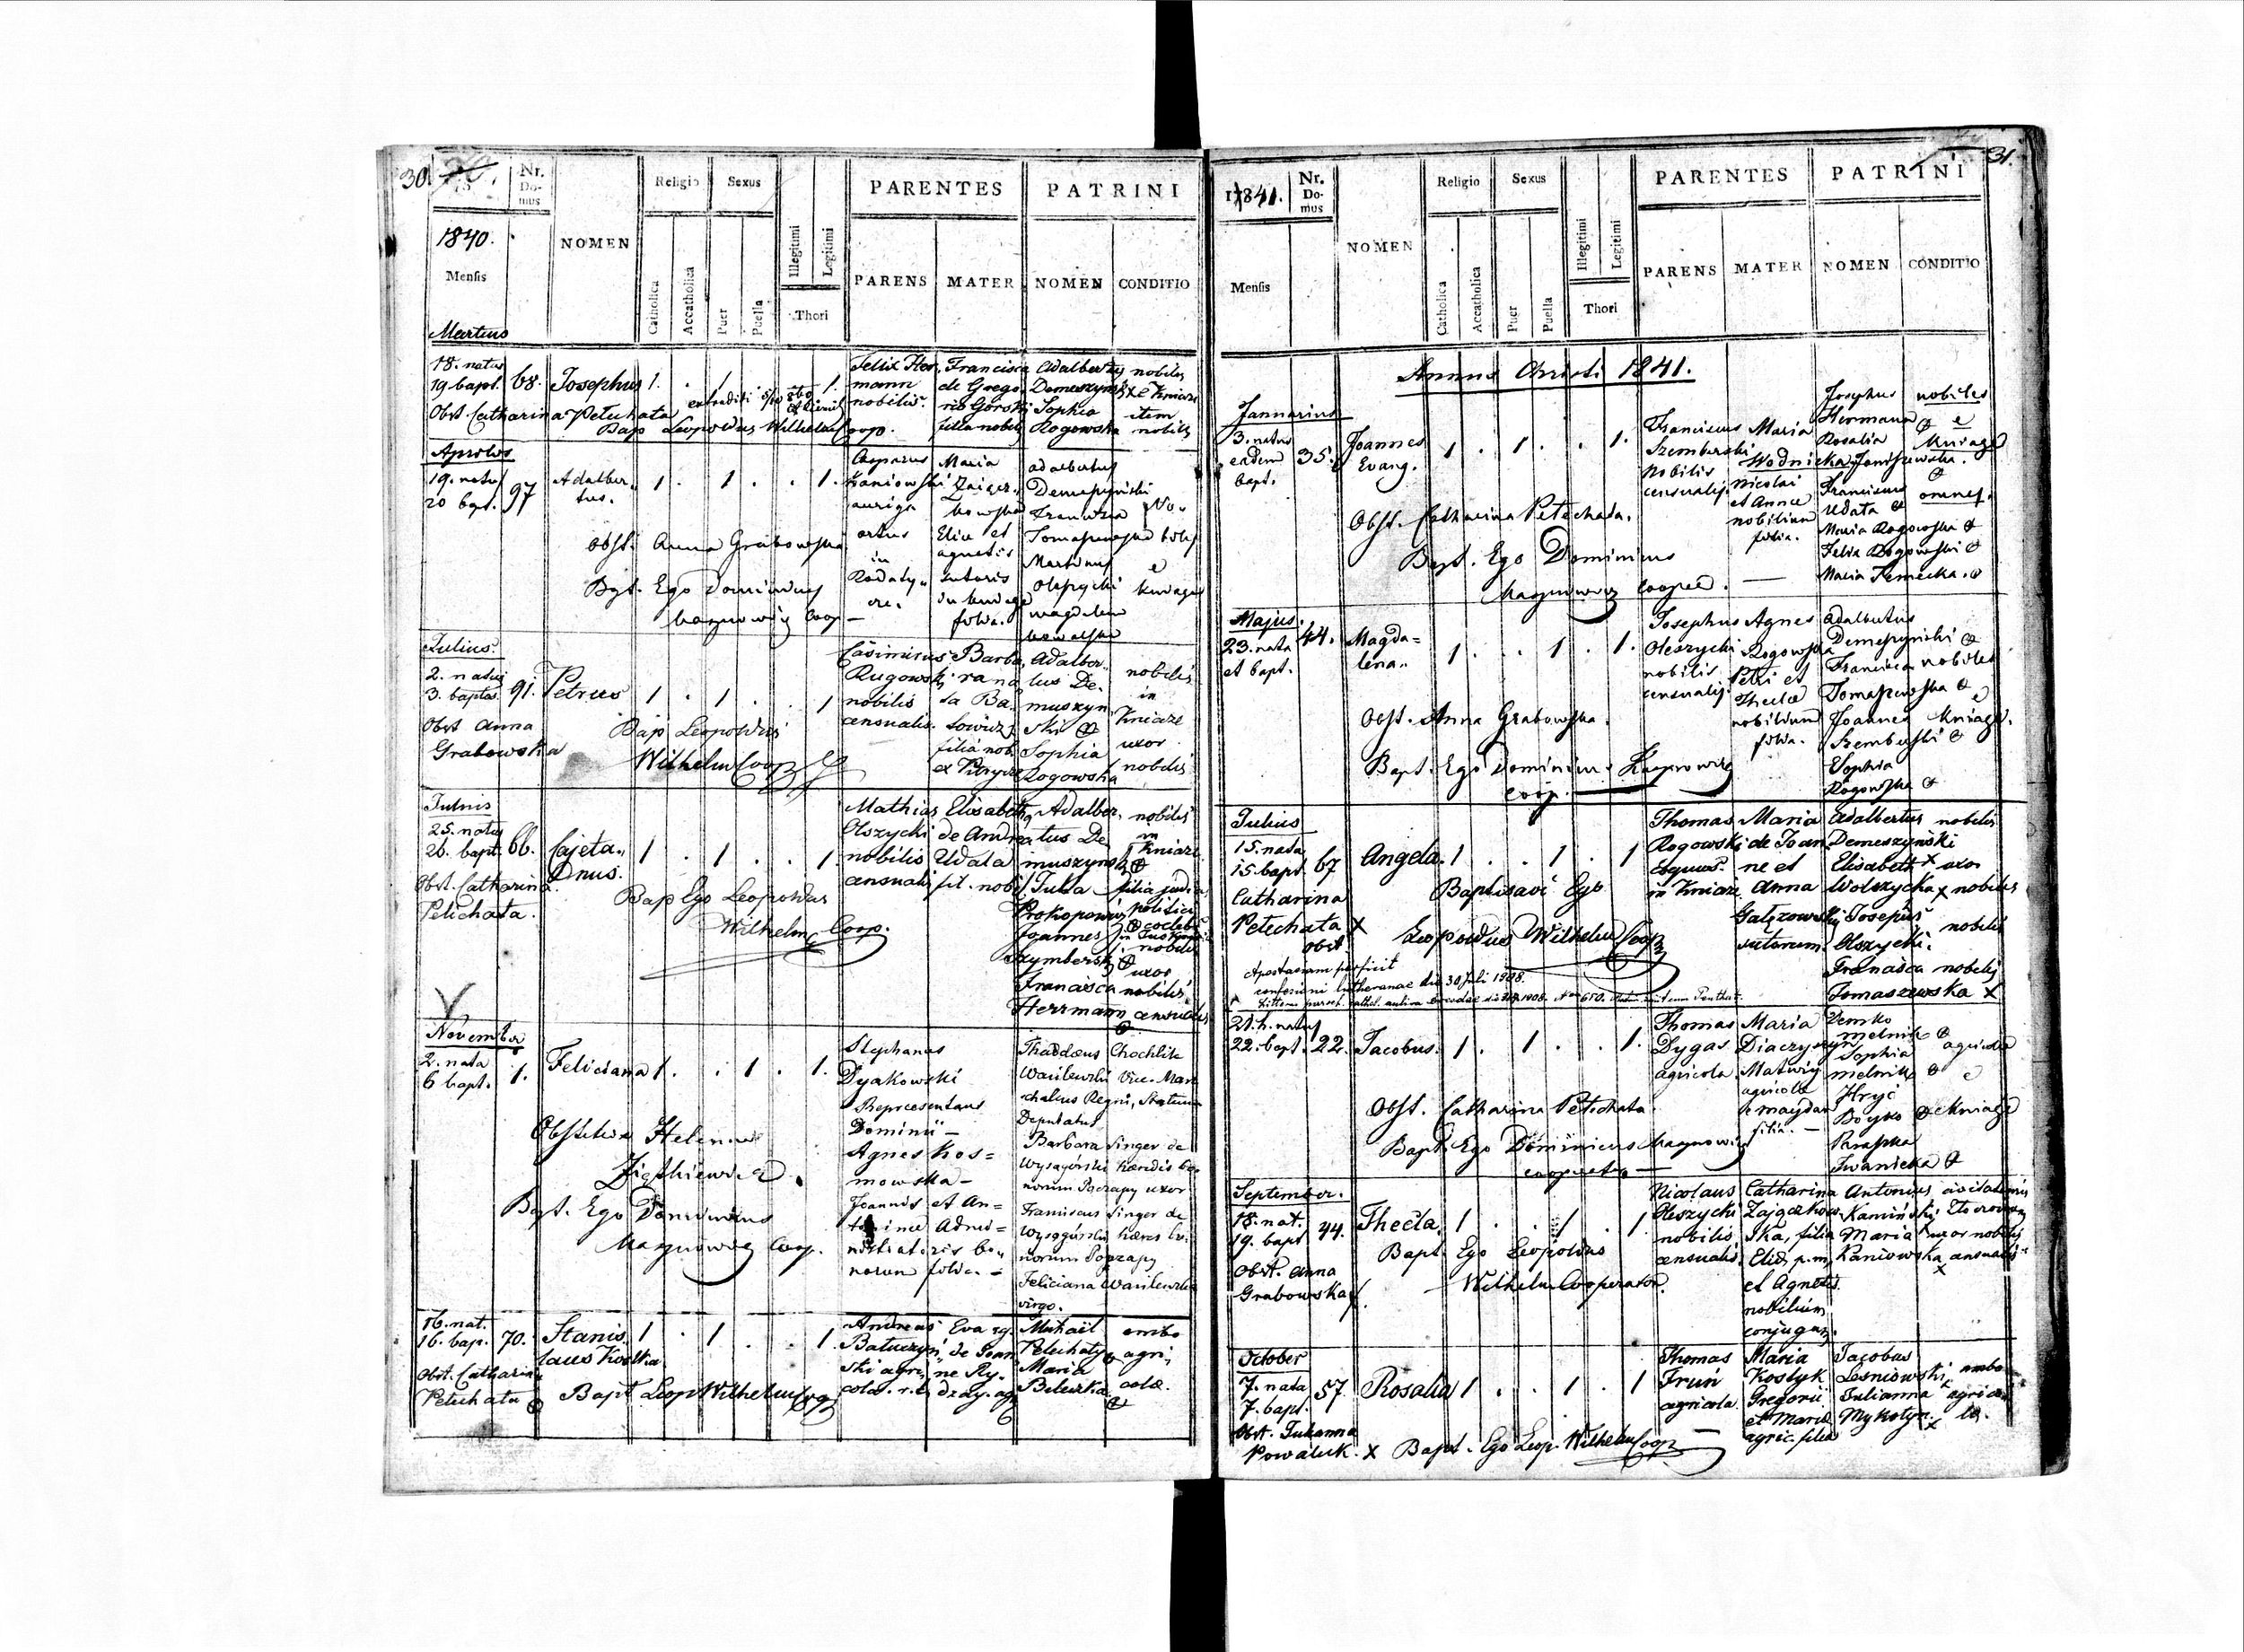 30.
Nr. Domus
Religio
Sexus
PARENTES
PATRINI
1840.
NOMEN
Illegitimi
Legitimi
Mensis
Catholica
Accatholica
Puer
Puella
Thori
PARENS
MATER
NOMEN
CONDITIO
Martius
18. natus
19 bapt.
68.
Josephus
1.
.
1
1.
Felix Her,
mann
nobilis.
Francisca
de Grego
rio Górski
filia nobilis
Adalbertus
Demuszyński
Sophia
Rogowska
nobiles
e Kniaże
item
nobilis
Obst. Catharina Petechata
Bap Leopoldus Wilhelm Coop.
Aprilis
19. natus
20 bapt.
97
Adalber,,
tus.
1
.
1
.
.
1.
Casparus
Kaniowski
auriga
ortus
in
Maria
Elia et
agnetis
filia.
Adalbertus
Demeszyński
Francisca
Tomaszewska
Martinus
Olszycki
Magdalena
Kowalska
No,,
biles
e
Kniaże
Obst. Anna Grabowska
Bapt. Ego Dominicus
Kaznowicz Coop
Julius
2. natus
3. baptas.
91.
Petrus
1
.
1
.
.
1
Casimirus
Rugowski
nobilis
censualis.
Barba,
rana
filia nob.
Adalber,
tus De,
muszyn
ski
Sophia
Rogowska
nobilis
in
Kniaże
uxor
nobilis
Obst Anna
Grabowska
Bap Leopoldus
Wilhelm Coop
Julius
25. natus
26. bapt.
66.
Cajeta,,
nus.
1
.
1
.
.
1
Mathias
Olszycki
nobilis
censualis
Elisabeth
de Andrea
Udala
fil. nobil.
Adalber,
tus De
muszynski
Julia
Prokopowicz
Joannes
Szymberski
Francisca
Herrmann
nobilis
in
Kniaże
filia judic
politici
nobilis
uxor
nobilis
censualis
Obst. Catharina
Petechata.
Bap Ego Leopoldus
Wilhelm Coop.
November
2. nata
6 bapt.
1.
Feliciana
1
.
.
1
.
1.
Stephanus
Dyakowski
Repraesentans
Dominii –
Agnes Kos=
mowska –
Joannis et An=
toninae Admi=
nistratoris bo,,
norum filia –
Thaddaeus Chochlik
Wasilewski Vice-Mar
chalcus Regni, Statuum
Deputatus
Barbara Singer de
Wysogórski haeredis bo,
norum Poczapy uxor
Franciscus Singer de
Wysogórski haeres bo,
norum Poczapy
Feliciana Wasilewska
virgo.
Obstetrix Helena
Bapt. Ego Dominicus
Kaznowicz Coop.
16. nat.
16. bap.
70.
Stanis
laus Kostka
1
.
1
.
.
1
Andreas
ski agri,
cola. r. l.
Eva rg.
de Joan
ne Ry,
Michael
Petechaty
Maria
Beleczka
ambo
agri,
colae.
Obst. Catharina
Petechata
Bapt Leop Wilhelm Coop
31.
1841.
Nr. Domus
Religio
Sexus
PARENTES
PATRINI
NOMEN
Illegitimi
Legitimi
Mensis
Catholica
Accatholica
Puer
Puella
Thori
PARENS
MATER
NOMEN
CONDITIO
Annus Christi 1841.
Januarius
3. natus
eadem
bapt.
35.
Joannes
Evang.
1
.
1
.
.
1.
Franciscus
Szemberski
Nobilis
censualis.
Maria
Wodnicka
Nicolai
et Annae
nobilium
filia.
Josephus
Hermann
Rosalia
Tomaszewska.
Franciscus
Udata
Maria Rogowska
Felix Rogowski
Maria Temecka.
nobiles
e
Kniaże
omnes.
Obst. Catharina Petechata.
Bapt. Ego Dominicus
Kaznowicz Cooper.
Majus.
23. nata
et bapt.
44.
Magda=
lena.
1
.
.
1
.
1.
Josephus
Oleszycki
nobilis
censualis.
Agnes
Rogowska
Petri et
Theclae
nobilium
filia.
Adalbertus
Demeszyński
Francisca
Tomaszewska
Joannes
Szemberski
Sophia
Rogowska
nobiles
e
Kniaże.
Obst. Anna Grabowska.
Bapt. Ego Dominicus Kaznowicz
Coop.
Julius
15. nata
15. bapt.
67
Angela.
1
.
.
1
.
1
Thomas
Rogowski
in Kniaże
Maria
de Joan
ne et
Anna
sutorum.
Adalbertus
Demeszyński
Elisabeth
Wolszycka
Josephus
Olszycki.
Francisca
Tomaszewska
nobilis
uxor
nobilis
nobilis
nobilis
Catharina
Petechata
obst
Baptisavi Ego
Leopoldus Wilhelm Coop
Apostasiam perfecit
confessioni lutheranae die 30 Juli 1908.
21. h. natus
22. bapt.
22.
Jacobus.
1
.
1
.
.
1.
Thomas
Dygas
agricola
Maria
Diaczyszyn
Matwij
agricolae
e maydan
filia. –
Demko
melnik
Sophia
melnik
Hryć
Boyko
Paraska
Iwanicka
agricolae
e
Kniaże
Obst. Catharina Petechata
Bapt. Ego Dominicus Kaznowicz
cooperator
September.
18. nat.
19. bapt
44.
Thecla
1
.
.
1
.
1
Nicolaus
Oleszycki
nobilis
censualis
Catharina
Zajączkow
ska, filia
Eliae p.m,
et Agnetis.
nobilium
conjugum.
Antonius
Kamiński
Maria
Kaniowska
uxor nobilis
censualis
Obst. Anna
Grabowska
Bapt. Ego Leopoldus
Wilhelm Cooperator.
October
7. nata
7. bapt.
57.
Rosalia
1
.
.
1
.
1
Thomas
Truń
agricola
Maria
Kostyk
Gregorii
et Maria
agric. filia
Jacobus
Lesniowski
Julianna
Mykotyn.
ambo
agrico
lae.
Obst. Julianna
Kowaluk.
Bapt. Ego Leop. Wilhelm Coop